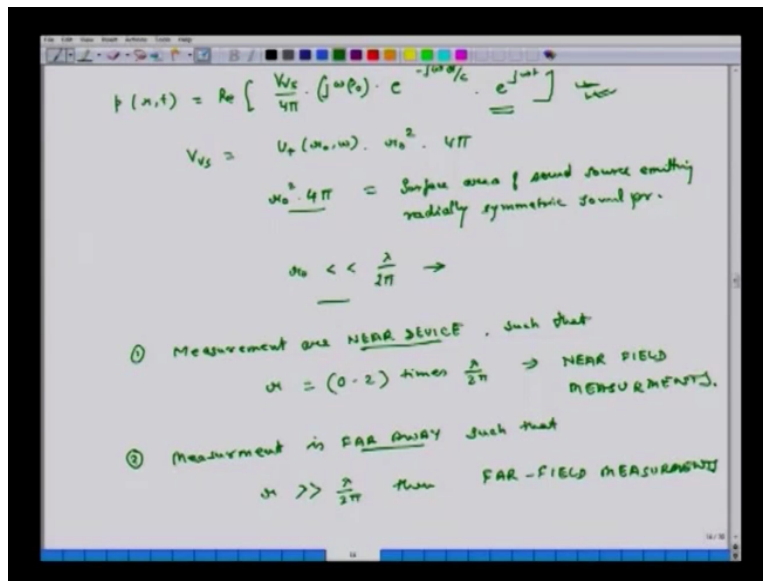 File Edit View Insert Actions Tools Help
p(r,t) = Re [ V_vs/4π · (jωρ₀) · e^(-jωr/c) · e^(jωt) ]
V_vs = U₊(r₀,ω) · r₀² · 4π
r₀² · 4π = Surface area of sound source emitting
radially symmetric sound pr.
r₀ << λ/2π →
① Measurement are NEAR DEVICE, such that
r = (0-2) times λ/2π → NEAR FIELD
MEASURMENTS.
② Measurment is FAR AWAY such that
r >> λ/2π then FAR-FIELD MEASURMENTS
14